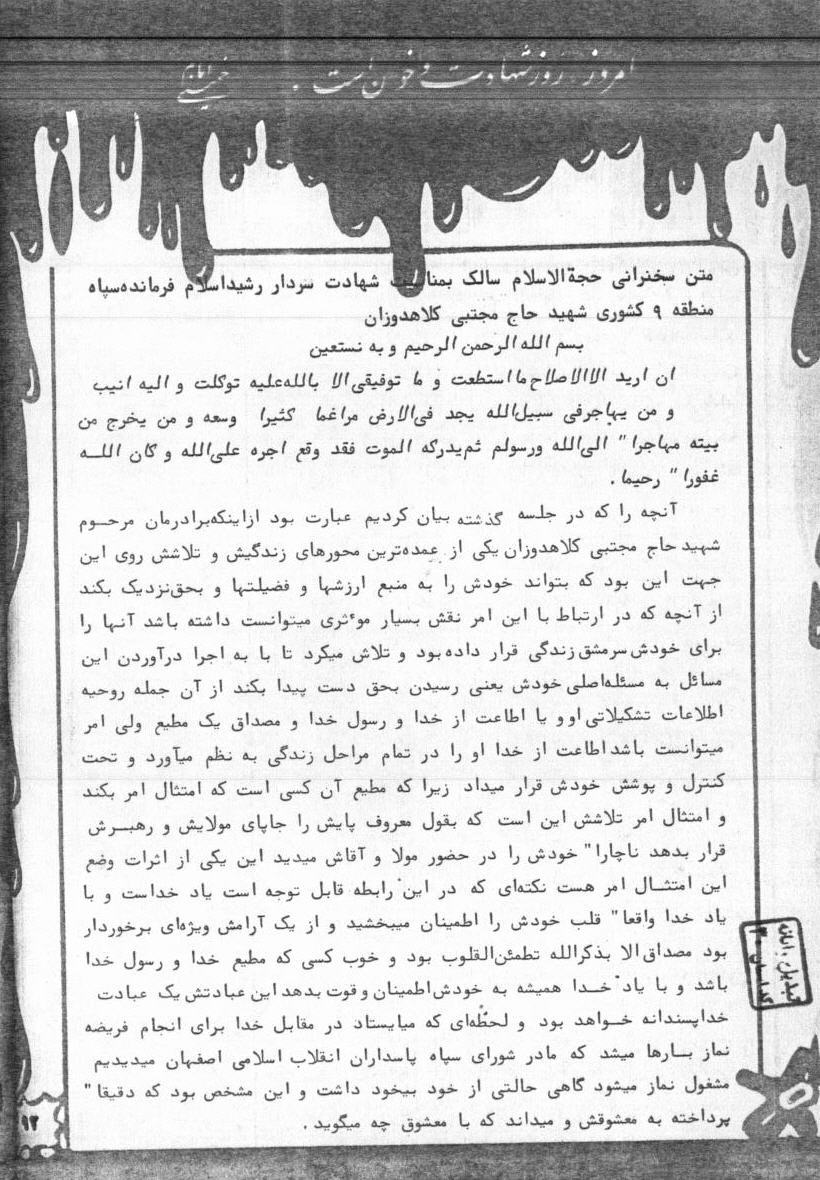 امروز، روز شهادت و خون است .
امام خمینی
متن سخنرانی حجةالاسلام سالک بمناسبت شهادت سردار رشیداسلام فرمانده‌سپاه
منطقه ۹ کشوری شهید حاج مجتبی کلاهدوزان
بسم الله الرحمن الرحیم و به نستعین
ان ارید الاالاصلاح مااستطعت و ما توفیقی‌الا بالله‌علیه توکلت و الیه انیب
و من یهاجرفی سبیل‌الله یجد فی‌الارض مراغما کثیرا وسعه و من یخرج من
بیته مهاجرا" الی‌الله ورسولم ثم‌یدرکه الموت فقد وقع اجره علی‌الله و کان اللـه
غفورا" رحیما .
آنچه را که در جلسه گذشته بیان کردیم عبارت بود ازاینکه‌برادرمان مرحـوم
شهید حاج مجتبی کلاهدوزان یکی از عمده‌ترین محورهای زندگیش و تلاشش روی این
جهت این بود که بتواند خودش را به منبع ارزشها و فضیلتها و بحق‌نزدیک بکند
از آنچه که در ارتباط با این امر نقش بسیار موءثری میتوانست داشته باشد آنها را
برای خودش سرمشق زندگی قرار داده‌بود و تلاش میکرد تا با به اجرا درآوردن این
مسائل به مسئله‌اصلی خودش یعنی رسیدن بحق دست پیدا بکند از آن جمله روحیه
اطلاعات تشکیلاتی او و یا اطاعت از خدا و رسول خدا و مصداق یک مطیع ولی امر
میتوانست باشد اطاعت از خدا او را در تمام مراحل زندگی به نظم میآورد و تحت
کنترل و پوشش خودش قرار میداد زیرا که مطیع آن کسی است که امتثال امر بکند
و امتثال امر تلاشش این است که بقول معروف پایش را جاپای مولایش و رهبـرش
قرار بدهد ناچارا" خودش را در حضور مولا و آقاش میدید این یکی از اثرات وضع
این امتثـال امر هست نکته‌ای که در این رابطه قابل توجه است یاد خداست و با
یاد خدا واقعا" قلب خودش را اطمینان میبخشید و از یک آرامش ویژه‌ای برخوردار
بود مصداق‌الا بذکرالله تطمئن‌القلوب بود و خوب کسی که مطیع خدا و رسول خدا
باشد و با یاد خـدا همیشه به خودش‌اطمینان وقوت بدهد این عبادتش یک عبادت
خداپسندانه خـواهد بود و لحظه‌ای که میایستاد در مقابل خدا برای انجام فریضه
نماز بـارها میشد که مادر شورای سپاه پاسداران انقلاب اسلامی اصفهان میدیدیم
مشغول نماز میشود گاهی حالتی از خود بیخود داشت و این مشخص بود که دقیقا"
پرداخته به معشوقش و میداند که با معشوق چه میگوید .
۹۲